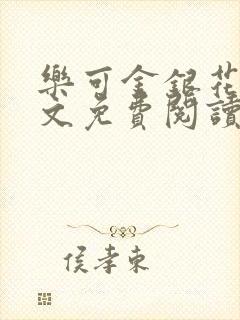 樂可金銀花
文免費閱讀
侯孝東